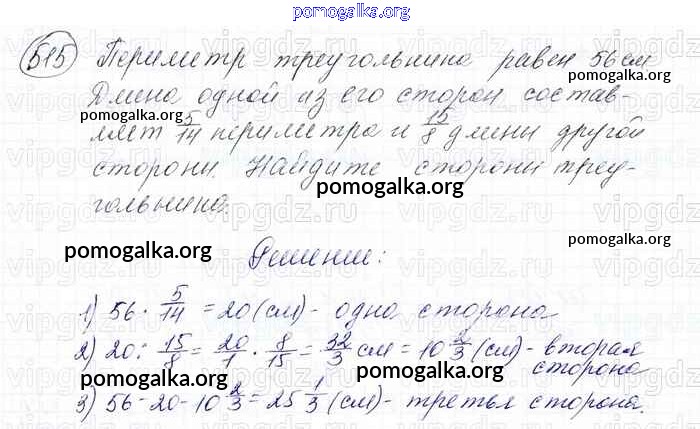 pomogalka.org
515 Периметр треугольника равен 56 см
pomogalka.org
Длина одной из его сторон состав-
ляет 5/14 периметра и 15/8 длины другой
стороны. Найдите стороны треу-
pomogalka.org
гольника.
pomogalka.org
pomogalka.org
Решение:
1) 56 · 5/14 = 20 (см) - одна сторона
pomogalka.org
2) 20 : 15/8 = 20/1 · 8/15 = 32/3 см = 10 2/3 (см) - вторая
сторона
pomogalka.org
pomogalka.org
3) 56 - 20 - 10 2/3 = 25 1/3 (см) - третья сторона.
pomogalka.org